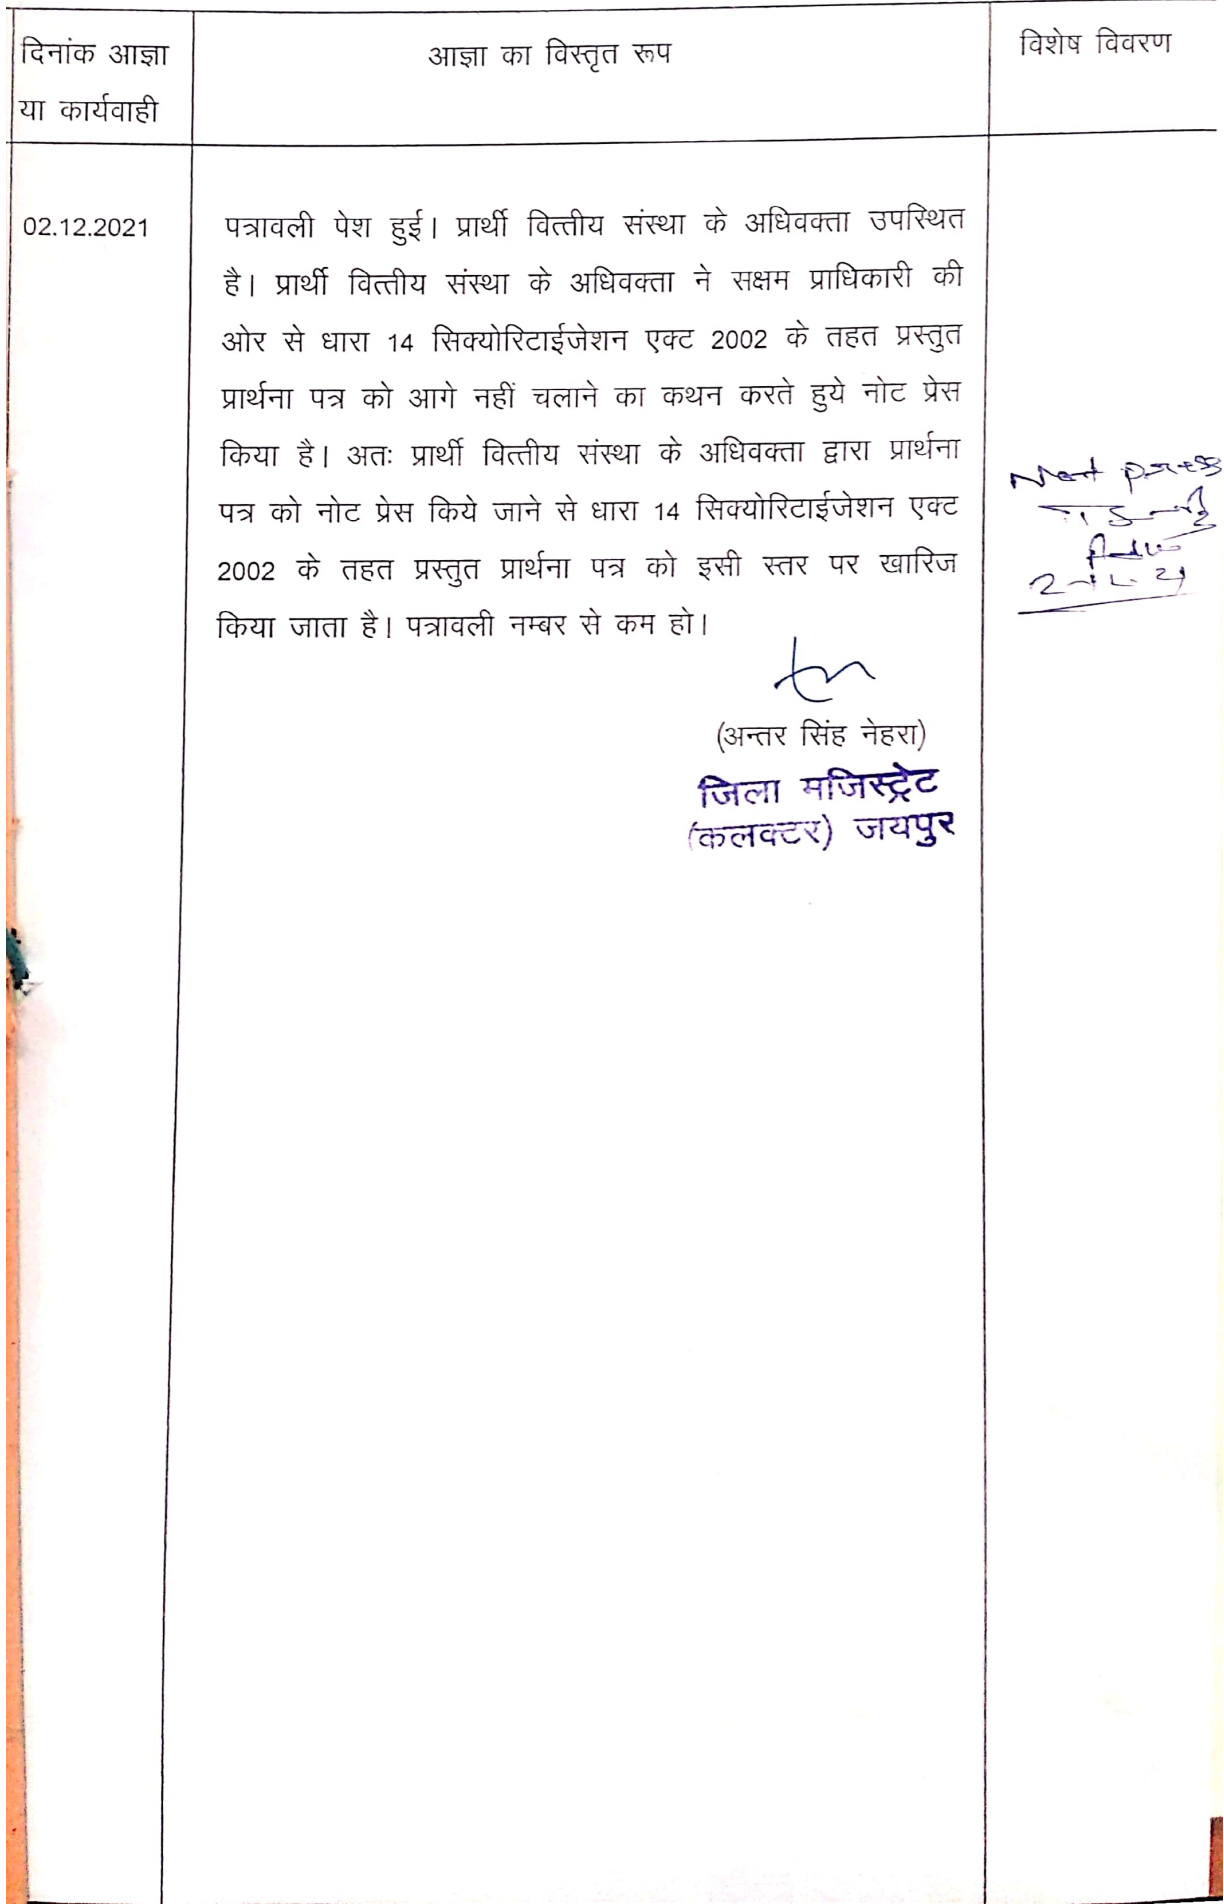 दिनांक आज्ञा
या कार्यवाही
आज्ञा का विस्तृत रूप
विशेष विवरण
02.12.2021
पत्रावली पेश हुई। प्रार्थी वित्तीय संस्था के अधिवक्ता उपस्थित
है। प्रार्थी वित्तीय संस्था के अधिवक्ता ने सक्षम प्राधिकारी की
ओर से धारा 14 सिक्योरिटाईजेशन एक्ट 2002 के तहत प्रस्तुत
प्रार्थना पत्र को आगे नहीं चलाने का कथन करते हुये नोट प्रेस
किया है। अतः प्रार्थी वित्तीय संस्था के अधिवक्ता द्वारा प्रार्थना
पत्र को नोट प्रेस किये जाने से धारा 14 सिक्योरिटाईजेशन एक्ट
2002 के तहत प्रस्तुत प्रार्थना पत्र को इसी स्तर पर खारिज
किया जाता है। पत्रावली नम्बर से कम हो।
(अन्तर सिंह नेहरा)
जिला मजिस्ट्रेट
(कलक्टर) जयपुर
Not press